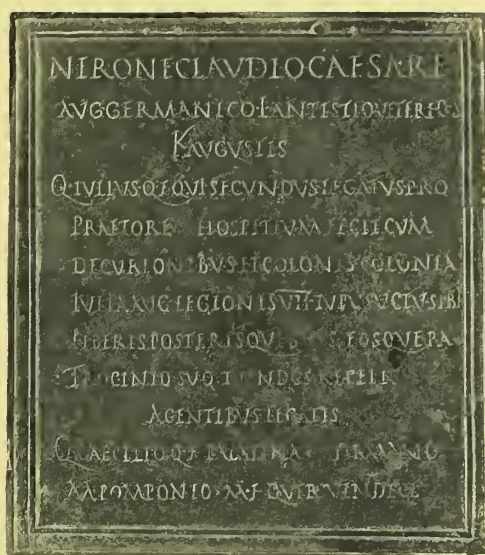 NERONE CLAVDIO CAESARE
AVG GERMANICO L ANTISTIO VETERE COS
K AVGVSTIS
Q IVLIVS Q F QVI SECVNDVS LEGATVS PRO
PRAETORE HOSPITIVM FECIT CVM
DECVRIONIBVS ET COLONIS COLONIA
IVLIA AVG LEGIONIS VII TVPVSVCTV SIBI
LIBERIS POSTERISQVE SVIS EOSQVE PA
TROCINIO SVO
AGENTIBVS LEGATIS
Q CAECILIO Q F PALATINA FIRMANO
M POMPONIO M F QVIR VINDICE